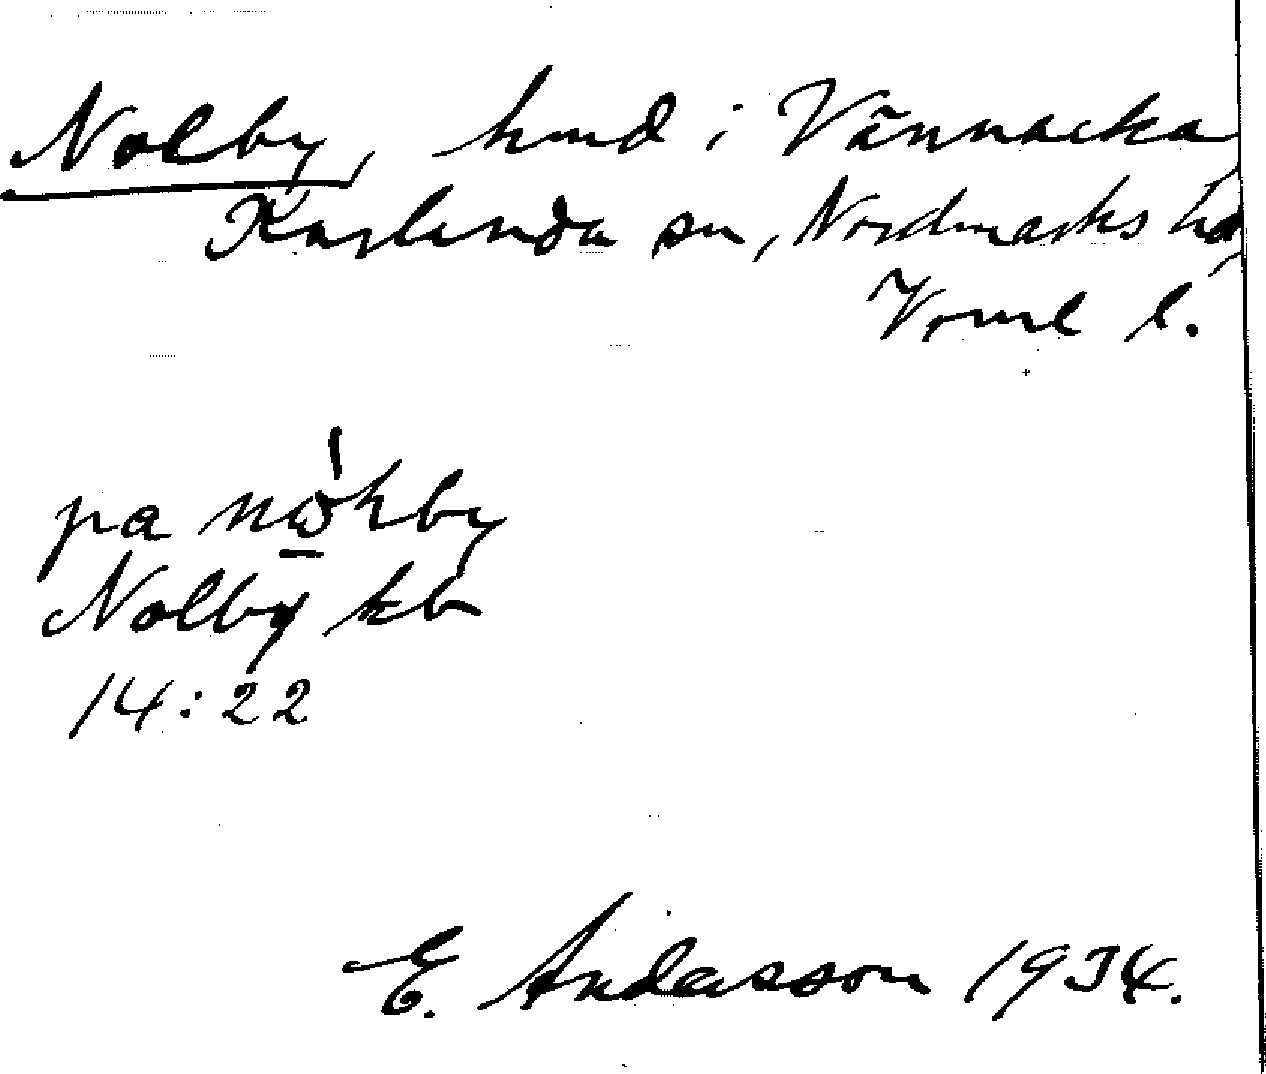 Nolby, hmd i Vännacka,
Karlanda sn, Nordmarks hd,
Vrml l.
pa nὼ̲hby
Nolby kb
14:22
E. Andersson 1934.